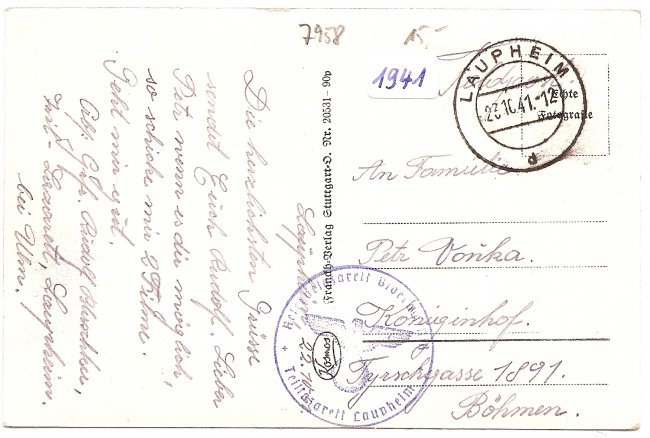 7958
15.-
1941
Feldpost
LAUPHEIM
23.10.41.-12
d
Echte
Fotografie
Laupheim, 22.
Die herzlichsten Grüsse
sendet Euch Rudolf. Lieber
Petr wenn es dir möglich,
so schicke mir 2 Filme.
Geht mir gut.
Rudolf
Laupheim.
bei Ulm.
Franckh-Verlag Stuttgart-O. Nr. 20531. 90p
Kosmos
Reservelazarett
Teillazarett Laupheim
An Familie
Petr Voňka.
Königinhof.
Tyrschgasse 1891.
Böhmen.